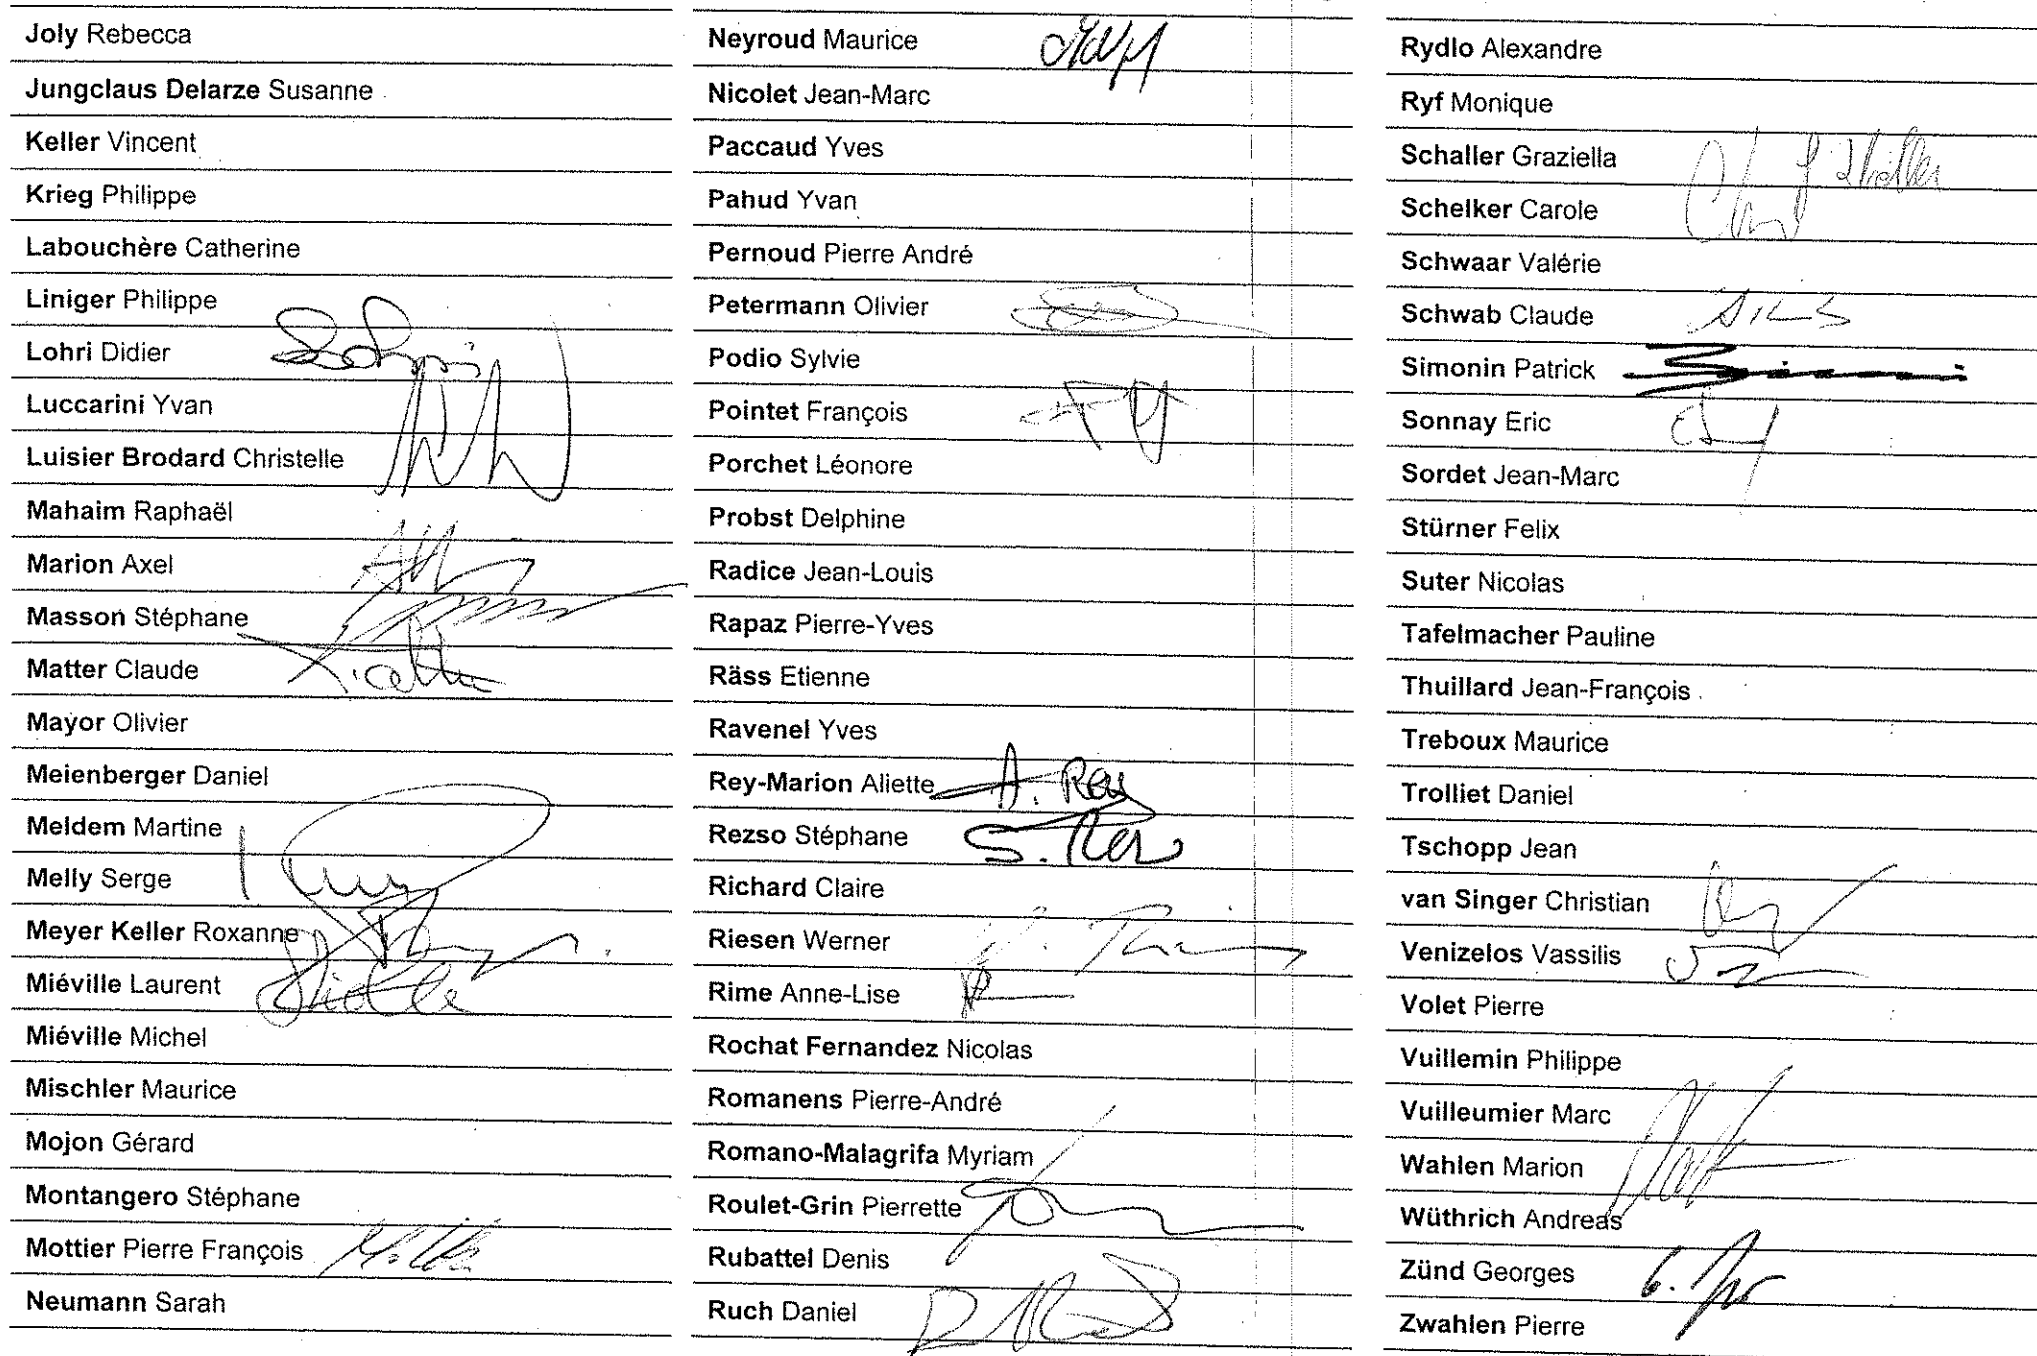 Joly Rebecca
Jungclaus Delarze Susanne
Keller Vincent
Krieg Philippe
Labouchère Catherine
Liniger Philippe
Lohri Didier
Luccarini Yvan
Luisier Brodard Christelle
Mahaim Raphaël
Marion Axel
Masson Stéphane
Matter Claude
Mayor Olivier
Meienberger Daniel
Meldem Martine
Melly Serge
Meyer Keller Roxanne
Miéville Laurent
Miéville Michel
Mischler Maurice
Mojon Gérard
Montangero Stéphane
Mottier Pierre François
Neumann Sarah
Neyroud Maurice
Nicolet Jean-Marc
Paccaud Yves
Pahud Yvan
Pernoud Pierre André
Petermann Olivier
Podio Sylvie
Pointet François
Porchet Léonore
Probst Delphine
Radice Jean-Louis
Rapaz Pierre-Yves
Räss Etienne
Ravenel Yves
Rey-Marion Aliette A. Rey
Rezso Stéphane
Richard Claire
Riesen Werner
Rime Anne-Lise
Rochat Fernandez Nicolas
Romanens Pierre-André
Romano-Malagrifa Myriam
Roulet-Grin Pierrette
Rubattel Denis
Ruch Daniel
Rydlo Alexandre
Ryf Monique
Schaller Graziella
Schelker Carole
Schwaar Valérie
Schwab Claude
Simonin Patrick
Sonnay Eric
Sordet Jean-Marc
Stürner Felix
Suter Nicolas
Tafelmacher Pauline
Thuillard Jean-François
Treboux Maurice
Trolliet Daniel
Tschopp Jean
van Singer Christian
Venizelos Vassilis
Volet Pierre
Vuillemin Philippe
Vuilleumier Marc
Wahlen Marion
Wüthrich Andreas
Zünd Georges
Zwahlen Pierre